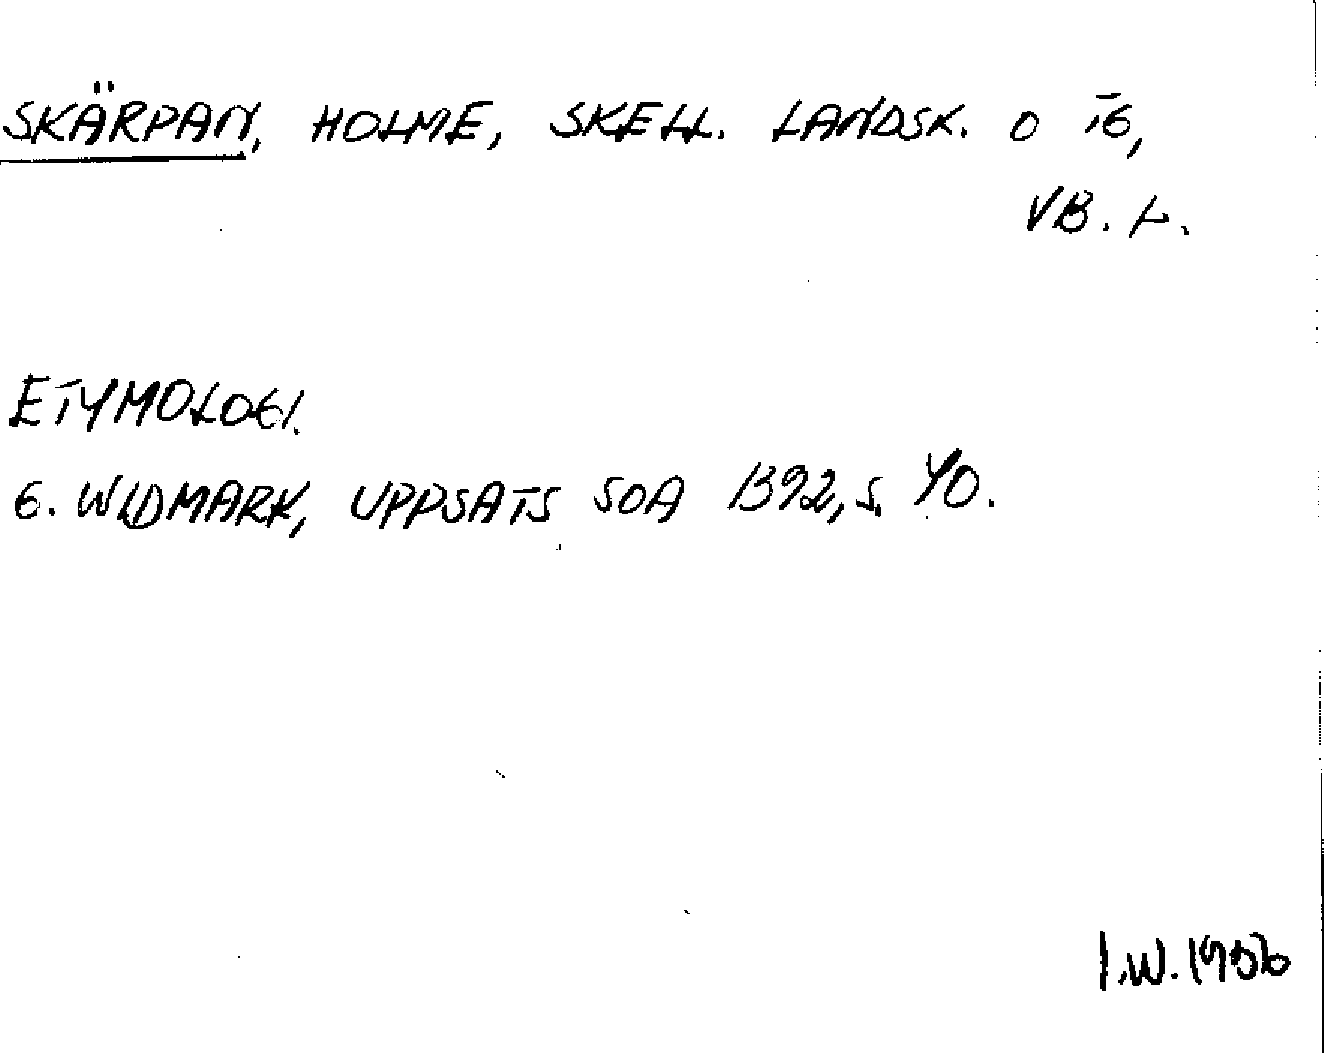 SKÄRPAN, HOLME, SKELL. LANDSK. O TG,
VB. L.
ETYMOLOGI.
G. WIDMARK, UPPSATS SOA 1392, S. 40.
I.W. 1956